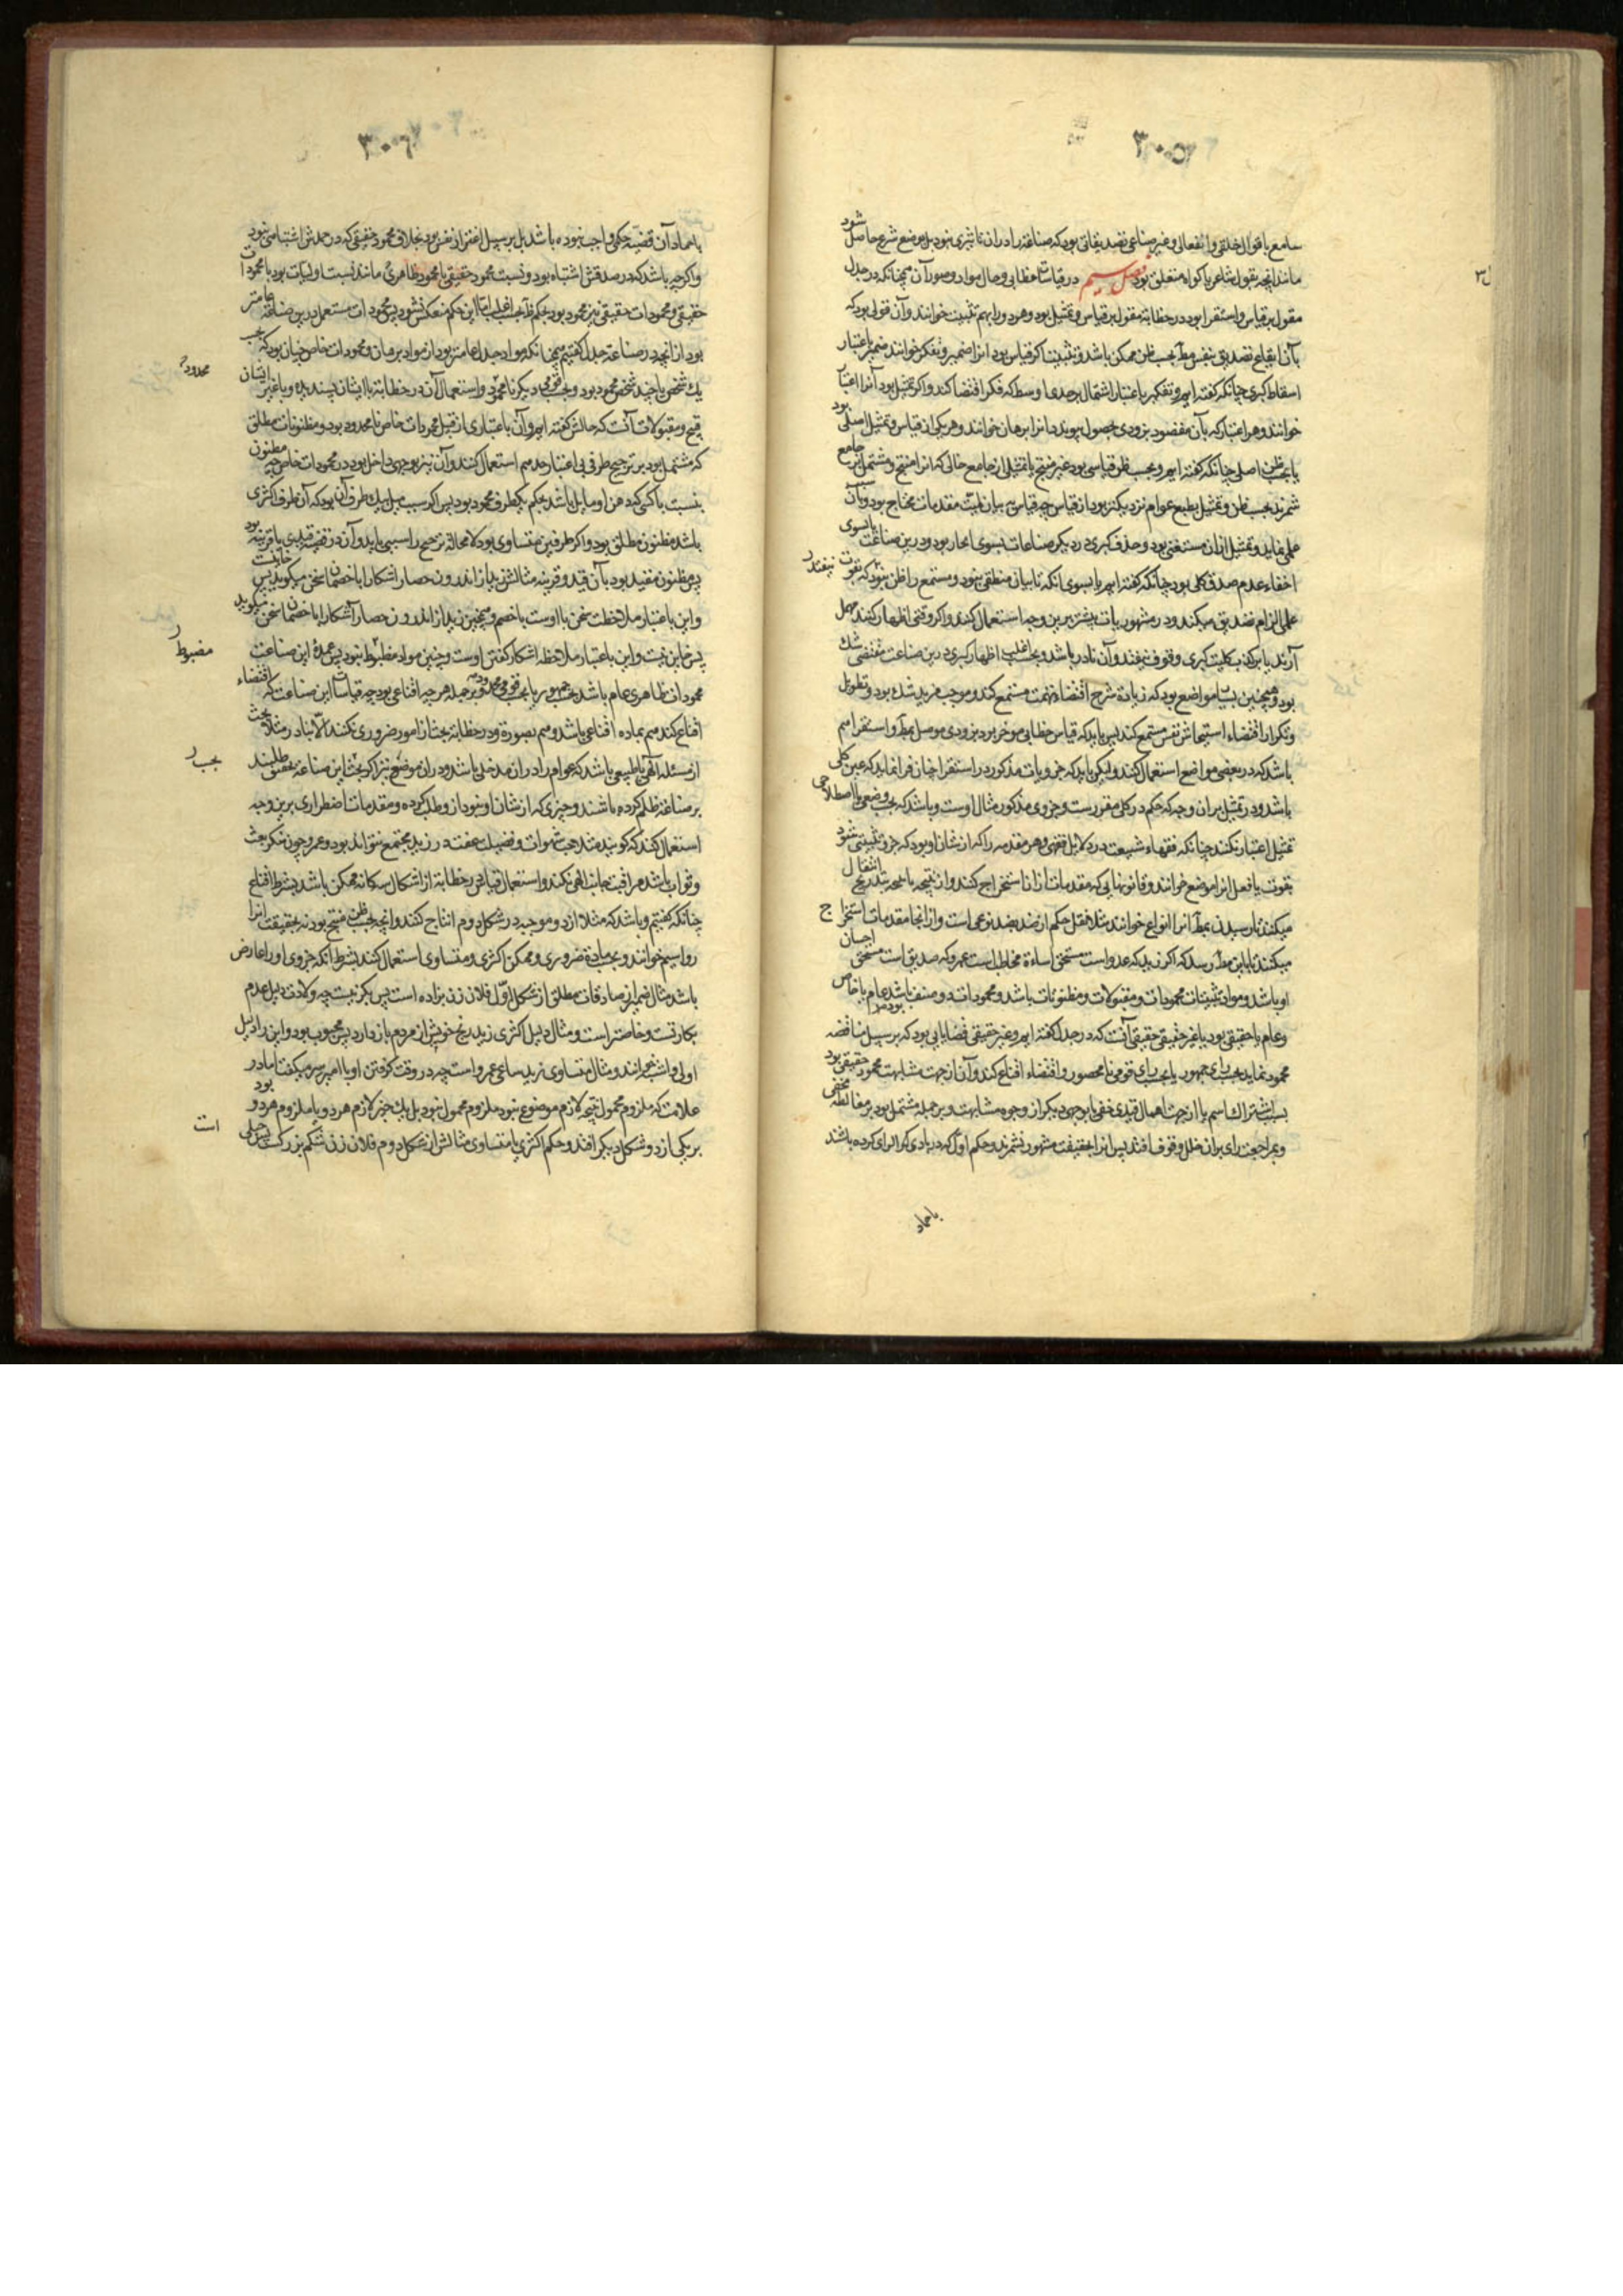 ۳۰۵
سامع یا قول خلقی و انفعالی و غیر صناعی تصدیقاتی بود که صناعة را در آن تاثیری نبود بل بوضع شرع حاصل شود
مانند آنچه بقول شاعر یا گواه متعلق بود فصل سیم در قیاسات خطابی و حال مواد و صور آن همچنانکه در جدل
مقول بر قیاس و استقرا بود در خطابة مقول بر قیاس و تمثیل بود و هر دو را بهم تثبیت خوانند و آن قولی بود که
بآن ایقاع تصدیق بنفس مط بحسب ظن ممکن باشد و تثبیت اگر قیاس بود آنرا ضمیر و تفکیر خوانند ضمیر باعتبار
اسقاط کبری چنانکه گفته ایم و تفکیر باعتبار اشتمال بر حدی اوسط که فکر اقتضا کند و اگر تمثیل بود آنرا اعتبار
خوانند و هر اعتبار که بآن مقصود بزودی بحصول پیوندد آنرا برهان خوانند و هر یکی از قیاس و تمثیل اصلی بود
یا بحسب ظن اصلی چنانکه گفته ایم و بحسب ظن قیاسی بود غیر منتج یا تمثیلی از جامع خالی که آنرا منتج و مشتمل بر جامع
شمرند بحسب ظن و تمثیل بطبع عوام نزدیکتر بود از قیاس چه قیاس به بیان لمیت مقدمات محتاج بود و آن
علمی نماید و تمثیل از آن مستغنی بود و حذف کبری در دیگر صناعات بسوی ایجاز بود و درین صناعت یا بسوی
اخفاء عدم صدق کلی بود چنانکه گفته ایم یا بسوی آنکه تا بیان منطقی نبود و مستمع را ظن نبود که بقوت
علمی الزام تصدیق میکند و در مشهوریات بیشتر برین وجه استعمال کنند و اگر وقتی اظهار کنند مهمل
آرند یا بر کذب کلیت کبری وقوف نیفتد و آن نادر باشد و بحسب اغلب اظهار کبری درین صناعت مقتضی شک
بود و همچنین بسا مواضع بود که زیادة شرح اقتضاء تهمت مستمع کند و موجب مزید شک بود و تطویل
و تکرار اقتضاء استیحاش نفس مستمع کند پس باید که قیاس خطابی موجز بود بزودی موصل بمط و استقرا هم
باشد که در بعضی مواضع استعمال کنند ولیکن باید که جزویات مذکور در استقرا چنان فرا نماید که عین کلی
باشد و در تمثیل بر آن وجه که حکم در کلی مقررست و جزوی مذکور مثال اوست و باشد که بحسب وضعی یا اصطلاحی
تمثیل اعتبار نکنند چنانکه فقهاء شیعت در دلایل فقهی و هر مقدمه را که از شان او بود که جزو تثبیتی شود
بقوت یا فعل آنرا موضع خوانند و قانونهایی که مقدمات از آنجا استخراج کنند و از نتیجه یا نتیجه بتدریج انتقال
میکنند تا رسیدن بمط آنرا انواع خوانند مثلا نقل حکم از ضد بضد نوعی است و از آنجا مقدمات استخراج
میکنند تا باین مط رسد که اگر زید که عدو است مستحق اساءة مخاطب است عمرو که صدیق است مستحق احسان
او باشد و مواد تثبیتات محمودات و مقبولات و مظنونات باشد و محمودات دو صنف باشد عام یا خاص
و عام یا حقیقی بود یا غیر حقیقی حقیقی آنست که در جدل گفته ایم و غیر حقیقی قضایایی بود که بر سبیل مناقضه
محمود نماید بحسب رای جمهور یا بحسب رای قومی نامحصور و اقتضاء اقناع کند و آن از جهت مشابهت محمود حقیقی بود
بسبب اشتراک اسم یا از جهت اهمال قیدی خفی یا بوجهی دیگر از وجوه مشابهت و بر جمله مشتمل بود بر مغالطه مخفی
و بمراجعت رای بر آن خلل وقوف افتد پس آنرا بحقیقت مشهور نشمرند و حکم اول که در بادی الرای کرده باشند
باعتماد
۳۰۶
باعتماد آن قضیه حکمی واجب نبوده باشد بل بر سبیل اغترار نفس بود بخلاف محمود حقیقی که در حمدش اشتباهی نبود
و اگر چه باشد که در صدقش اشتباه بود و نسبت محمود حقیقی با محمود ظاهری مانند نسبت اولیات بود با محمودات
حقیقی و محمودات حقیقی نیز محمود بود بحکم ظاهر بحسب اغلب اما این حکم منعکس نشود پس محمودات مستعمل درین صناعة عامتر
بود از آنچه در صناعة جدل گفتیم همچنانکه مواد جدل عامتر بود از مواد برهان و محمودات خاص چنان بود که بحسب
یک شخص یا چند شخص محمود بود و بحسب قومی دیگر نامحمود و استعمال آن در خطابة با ایشان پسندیده و با غیر ایشان
قبیح و مقبولات آنست که حالش گفته ایم و آن باعتباری از قبیل محمودات خاص نامحدود بود و مظنونات مطلق
که مشتمل بود بر ترجیح طرفی بی اعتبار حمد هم استعمال کنند و آن نیز بوجهی داخل بود در محمودات خاص چه مظنون
بنسبت با کسی که ذهن او مایل باشد بحکم یکطرف محمود بود پس اگر سبب میل بیک طرف آن بود که آن طرف اکثری
باشد مظنون مطلق بود و اگر طرفین متساوی بود لامحاله ترجیح را سببی باید و آن در قضیه قیدی یا قرینه بود
پس مظنون مقید بود بآن قید و قرینه مثالش زید از اندرون حصار آشکارا با خصمان سخن میگوید پس خاینست
و این باعتبار ملاحظت سخن با اوست با خصم و همچنین زید از اندرون حصار آشکارا با خصمان سخن میگوید
پس خاین نیست و این باعتبار ملاحظه آشکار گفتن اوست و چنین مواد مضبوط نبود پس عمدهٔ این صناعت
محمودات ظاهری عام باشد بحسب جمهور یا بحسب قومی محدود و بر جمله هر چه اقناعی بود چه قیاسات این صناعت که اقتضاء
اقناع کند هم بماده اقناعی باشد و هم بصورة و در خطابة بحث از امور ضروری نکنند الا نادر مثلا بحث
از مسئله الهی یا طبیعی باشد که عوام را در آن مدخلی باشد و در آن موضع نیز اگر بحث این صناعة بتحقیق طلبند
بر صناعة ظلم کرده باشند و چیزی که از شان او نبود از و طلب کرده و مقدمات اضطراری برین وجه
استعمال کنند که گویند مثلا حب شهوات و فضیلت عفت در زید مجتمع نتواند بود و عمرو چون منکر بعث
و ثواب باشد مراقبت جانب الهی نکند و استعمال قیاس در خطابة از اشکال سه‌گانه ممکن باشد بشرط اقناع
چنانکه گفتیم و باشد که مثلا از دو موجبه در شکل دوم انتاج کنند و آنچه بحسب ظن منتج بود نه بحقیقت آنرا
رواسیم خوانند و بحسب ماده ضروری و ممکن اکثری و متساوی استعمال کنند بشرط آنکه جزوی او را عارض
باشد مثال ضمیر از صادقات مطلق از شکل اول فلان زن بزاده است پس بکر نیست چه ولادت دلیل عدم
بکارتست و خاصتر است و مثال دلیل اکثری زید رنج خویش از مردم باز دارد پس محبوب بود و این را دلیل
اولی و اشبه خوانند و مثال متساوی زید ساعی عمرو است چه در وقت گرفتن او با امیر سر میگفت اما در
علامت که ملزوم محمول نتیجه لازم موضوع نبود ملزوم محمول نبود بل یک چیز لازم هر دو یا ملزوم هر دو بود
بر یکی از دو شکل دیگر افتد و حکم اکثری یا متساوی مثالش از شکل دوم فلان زن شکم بزرگست پس حبلی
محدود
مضبوط
است